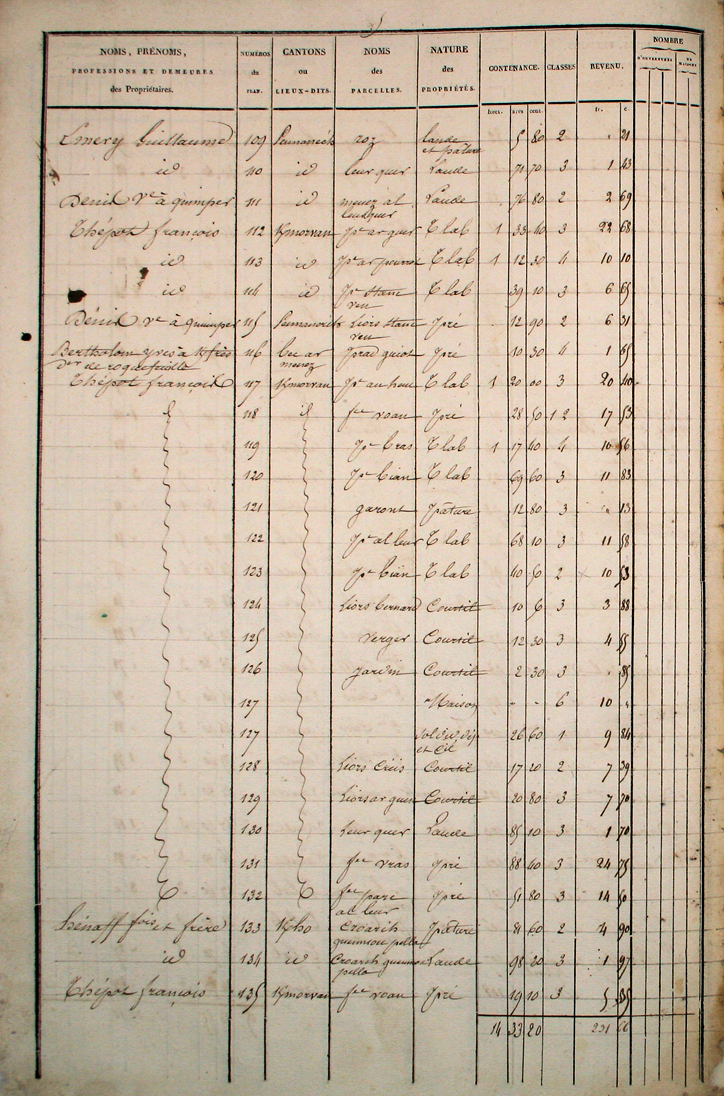 NOMS, PRÉNOMS, PROFESSIONS ET DEMEURES des Propriétaires. NUMÉROS du PLAN. CANTONS ou LIEUX-DITS. NOMS des PARCELLES. NATURE des PROPRIÉTÉS. CONTENANCE. CLASSES REVENU. NOMBRE D'OUVERTURES DE MAISONS
hect. ares cent. fr. c.
Emery Guillaume 109 roz lande et pature 5 80 2 " 21
id 110 id leur quer Lande 71 70 3 1 43
Denil Ve à quimper 111 id menez al Lande 76 80 2 2 69
Thépot françois 112 Kmorvan Pc ar guer T lab 1 33 40 3 22 68
id 113 id T lab 1 12 30 4 10 10
id 114 id Pc stanc ven T lab 39 10 3 6 65
Dénil Ve à quimper 115 Liors stanc ven Pré 12 90 2 6 31
Bertholom yves à de roquefeuille 116 bec ar menez Prad Pré 10 30 4 1 65
Thépot françois 117 Kmorvan Pc an T lab 1 20 00 3 20 40
id 118 id fee voan Pré 28 50 1 2 17 53
119 Pc bras T lab 1 17 40 4 10 56
120 Pc bian T lab 69 60 3 11 83
121 garont Pature 12 80 3 " 13
122 Pc al leur T lab 68 10 3 11 58
123 Pc bian T lab 40 50 2 10 53
124 Liors bernard Courtil 10 6 3 3 88
125 Verger Courtil 12 30 3 4 55
126 jardin Courtil 2 30 3 " 85
127 Maison - - 6 10 "
127 26 60 1 9 84
128 Liors Creis Courtil 17 20 2 7 39
129 Liors ar guen Courtil 20 80 3 7 70
130 Leur quer Lande 85 10 3 1 70
131 fee vras Pré 88 40 3 24 75
132 fee parc al leur Pré 51 80 3 14 50
hénaff fois et frère 133 Kho Croarch queuniou pella Pature 81 60 2 4 90
id 134 id Croarch pella Lande 98 20 3 1 97
Thépot françois 135 Kmorvan fee voan Pré 19 10 3 5 35
14 33 20 231 66